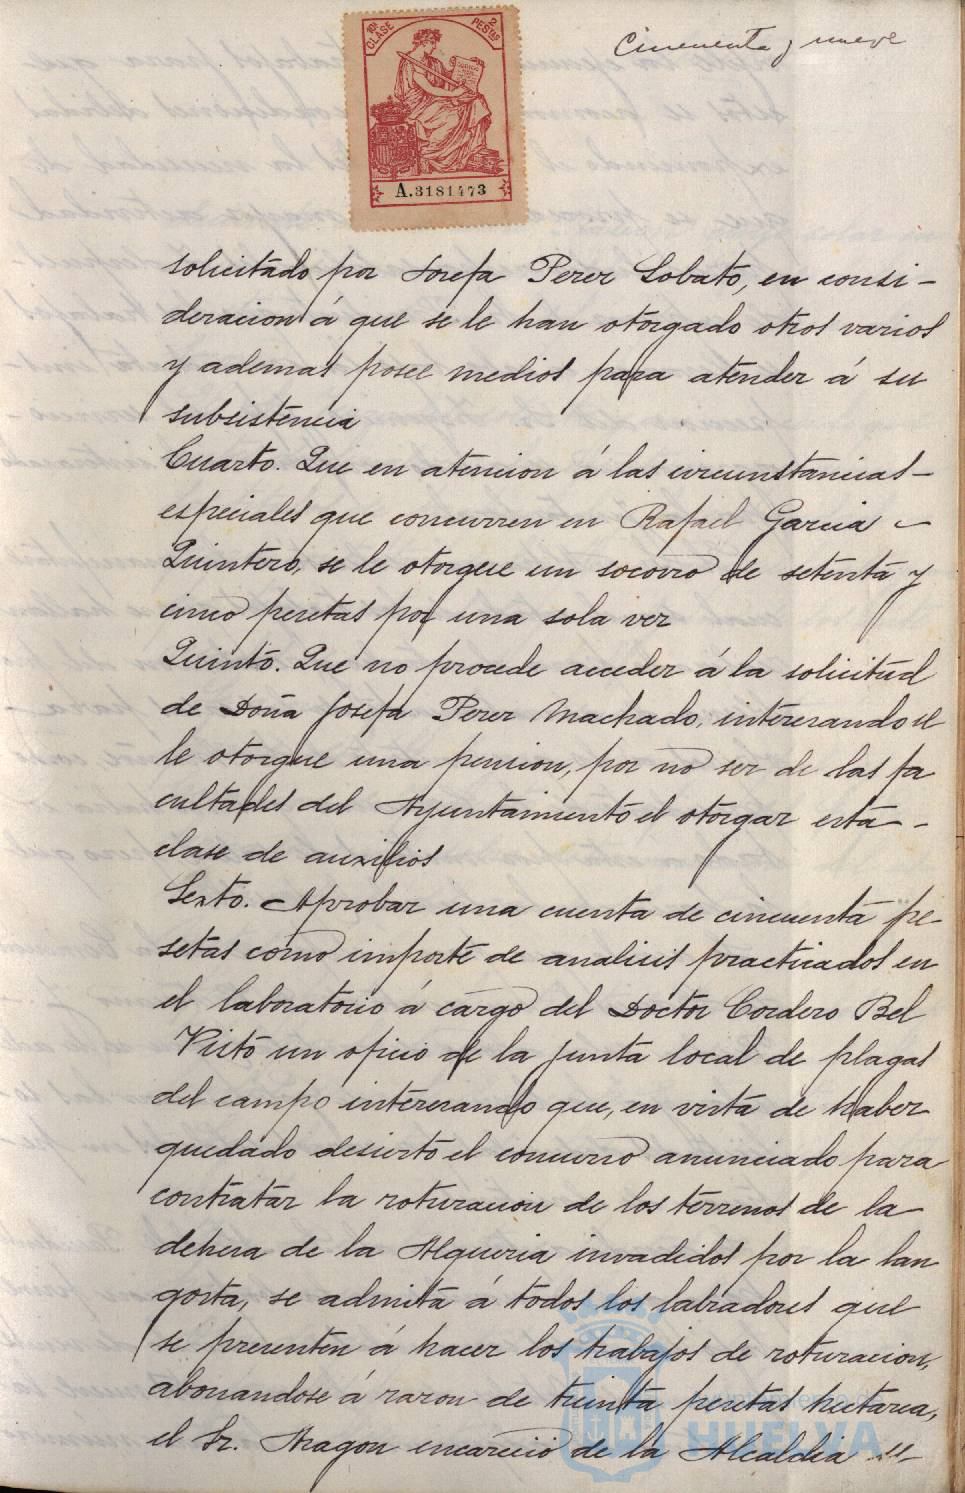 Cincuenta y nueve
10ª CLASE
2 PESTAS
A.3181473
solicitado por Josefa Perez Lobato, en consi-
deracion á que se le han otorgado otros varios
y ademas posee medios para atender á su
subsistencia
Cuarto. Que en atencion á las circunstancias
especiales que concurren en Rafael Garcia
Quintero, se le otorgue un socorro de setenta y
cinco pesetas por una sola vez
Quinto. Que no procede acceder á la solicitud
de Doña Josefa Perez Machado, interesando se
le otorgue una pension, por no ser de las fa
cultades del Ayuntamiento el otorgar esta
clase de auxilios
Sexto. Aprobar una cuenta de cincuenta pe-
setas como importe de analisis practicados en
el laboratorio á cargo del Doctor Cordero Bel
Visto un oficio de la Junta local de plagas
del campo interesando que, en vista de haber
quedado desierto el concurso anunciado para
contratar la roturacion de los terrenos de la
dehesa de la Alqueria invadidos por la lan
gosta, se admita á todos los labradores que
se presenten á hacer los trabajos de roturacion,
abonandose á razon de treinta pesetas hectarea,
el Sr. Aragon encareció de la Alcaldia
AYUNTAMIENTO DE
HUELVA